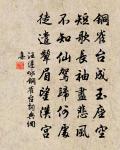 銅雀台成玉座空
短歌長袖盡悲風
不知仙駕歸何處
徒遣顰眉望漢宮
汪遵詠銅雀台詞典網
集